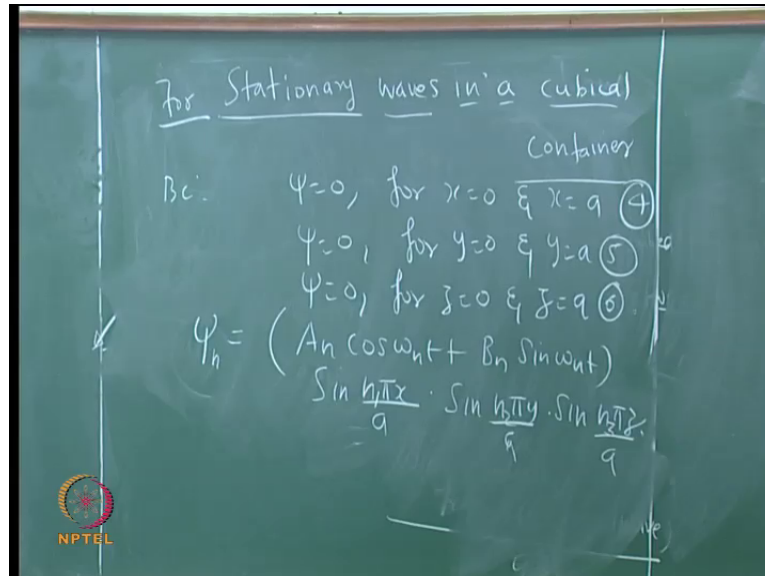 For Stationary waves in a cubical
container
Bc: ψ=0, for x=0 & x=a ④
ψ=0, for y=0 & y=a ⑤
ψ=0, for z=0 & z=a ⑥
ψn = (An cos ωnt + Bn sin ωnt)
Sin n₁πx/a · Sin n₂πy/a · Sin n₃πz/a
NPTEL